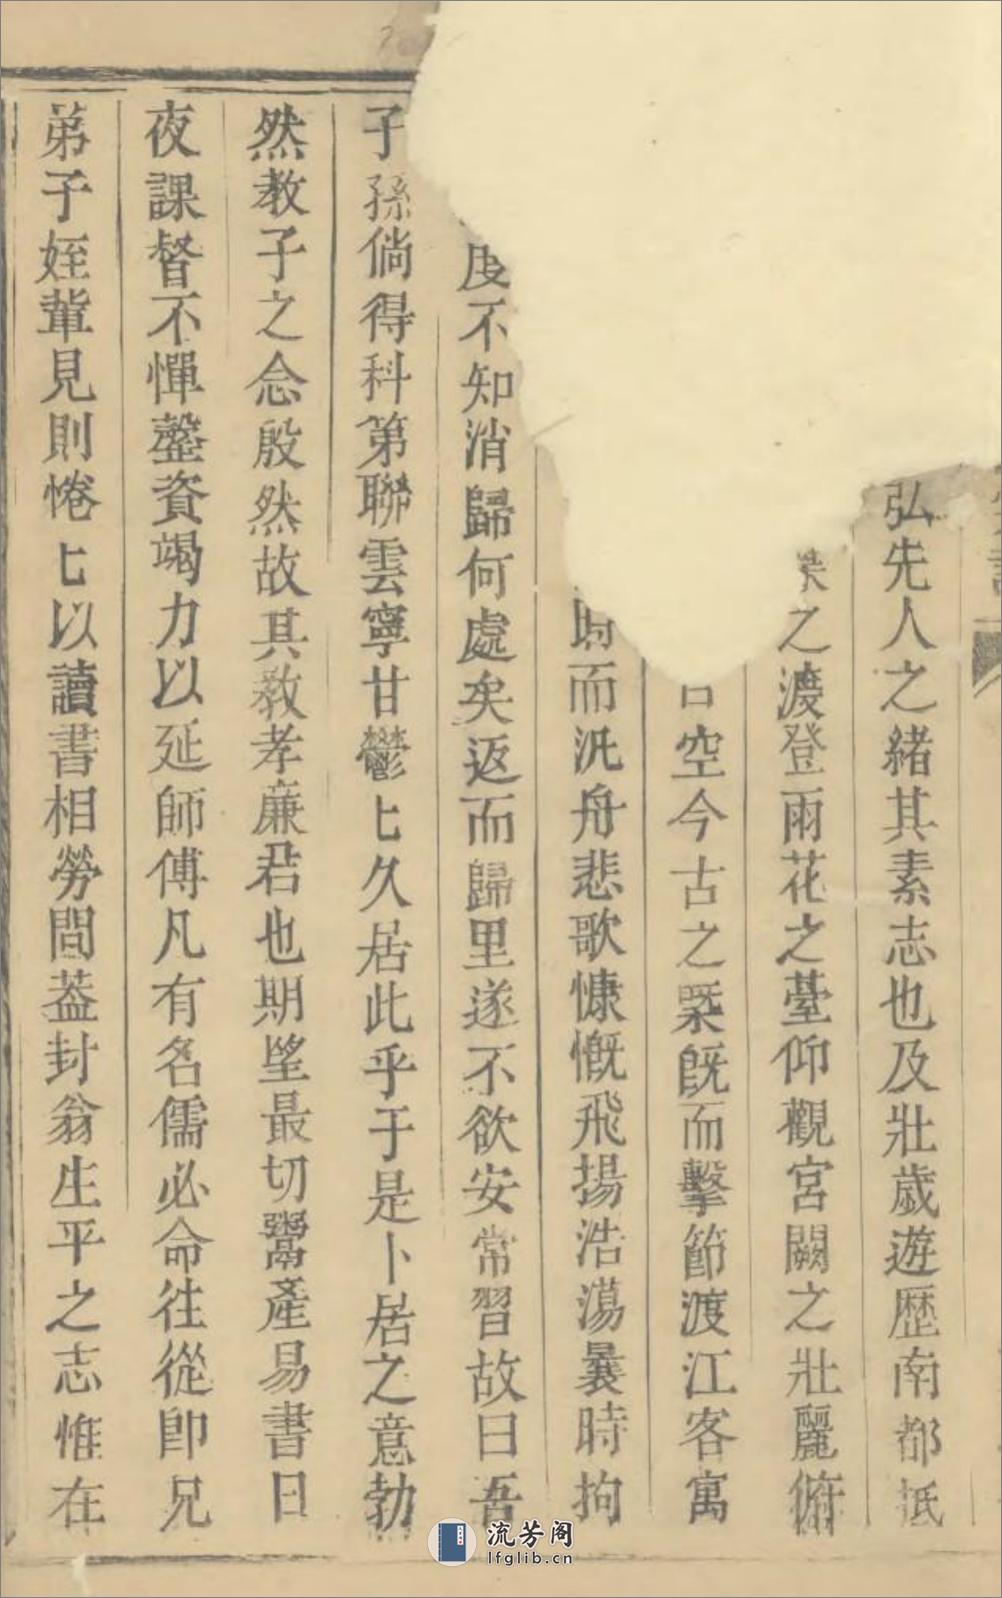 弘先人之緒其素志也及壯歲遊歷南都抵
之渡登雨花之臺仰觀宮闕之壯麗俯
空今古之槩既而擊節渡江客寓
而汎舟悲歌慷慨飛揚浩蕩曩時拘
度不知消歸何處矣返而歸里遂不欲安常習故曰吾
子孫倘得科第聯雲寧甘鬱匕久居此乎于是卜居之意勃
然教子之念殷然故其教孝廉君也期望最切鬻產易書日
夜課督不憚罄資竭力以延師傅凡有名儒必命往從即兄
弟子姪輩見則惓匕以讀書相勞問葢封翁生平之志惟在
流芳阁
lfglib.cn